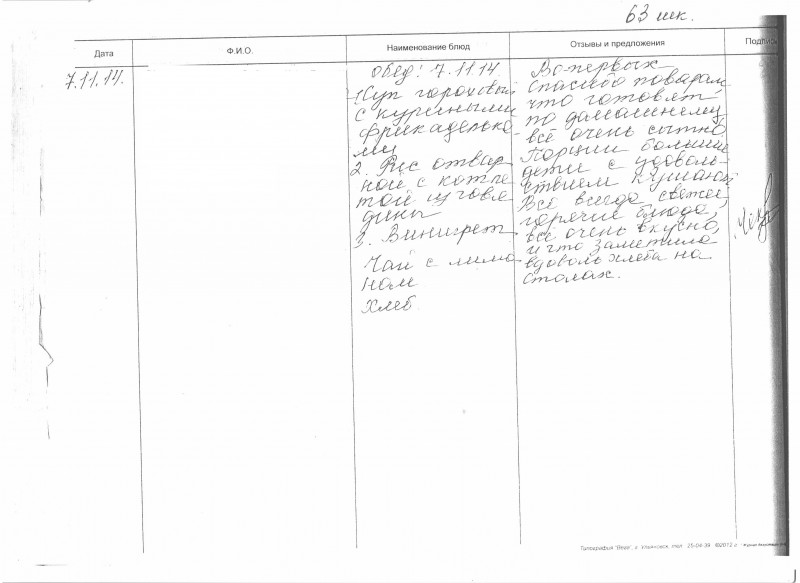 63 шк.
Дата Ф.И.О. Наименование блюд Отзывы и предложения Подпись
7.11.14.
Обед! 7.11.14
1 Суп гороховый
с куриными
фрикаделька-
ми
2. Рис отвар-
ной с котле-
той из говя-
дины
3. Винигрет
Чай с лимо-
ном
Хлеб.
Во-первых
спасибо поварам
что готовят
по домашнему,
всё очень сытно
Порции большие
дети с удоволь-
ствием кушают
Всё всегда свежее,
горячие блюда,
всё очень вкусно,
и что заметила
вдоволь хлеба на
столах.
Типография "Вега", г. Ульяновск, тел. 25-04-39 ©2012 г.